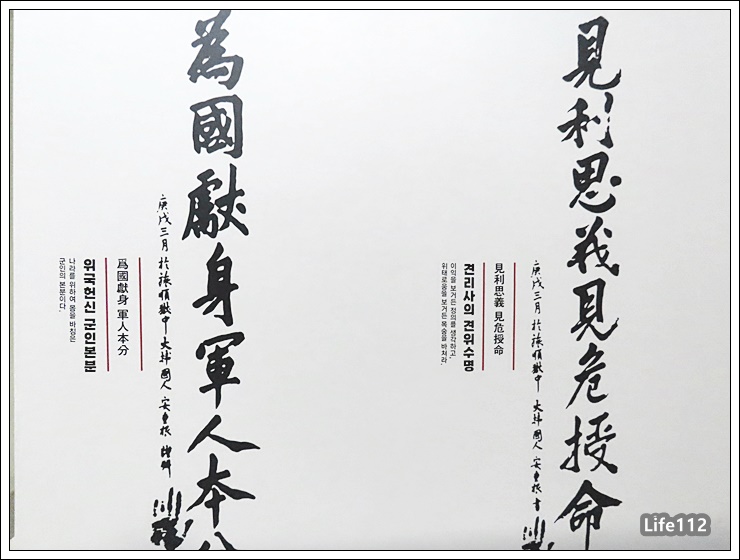 見利思義見危授命
庚戌三月 於旅順獄中 大韓國人 安重根 書
見利思義 見危授命
견리사의 견위수명
이익을 보거든 정의를 생각하고,
위태로움을 보거든 목숨을 바쳐라.
為國獻身軍人本
庚戌三月 於旅順獄中 大韓國人 安重根 謹拜
爲國獻身 軍人本分
위국헌신 군인본분
나라를 위하여 몸을 바침은
군인의 본분이다.
Life112